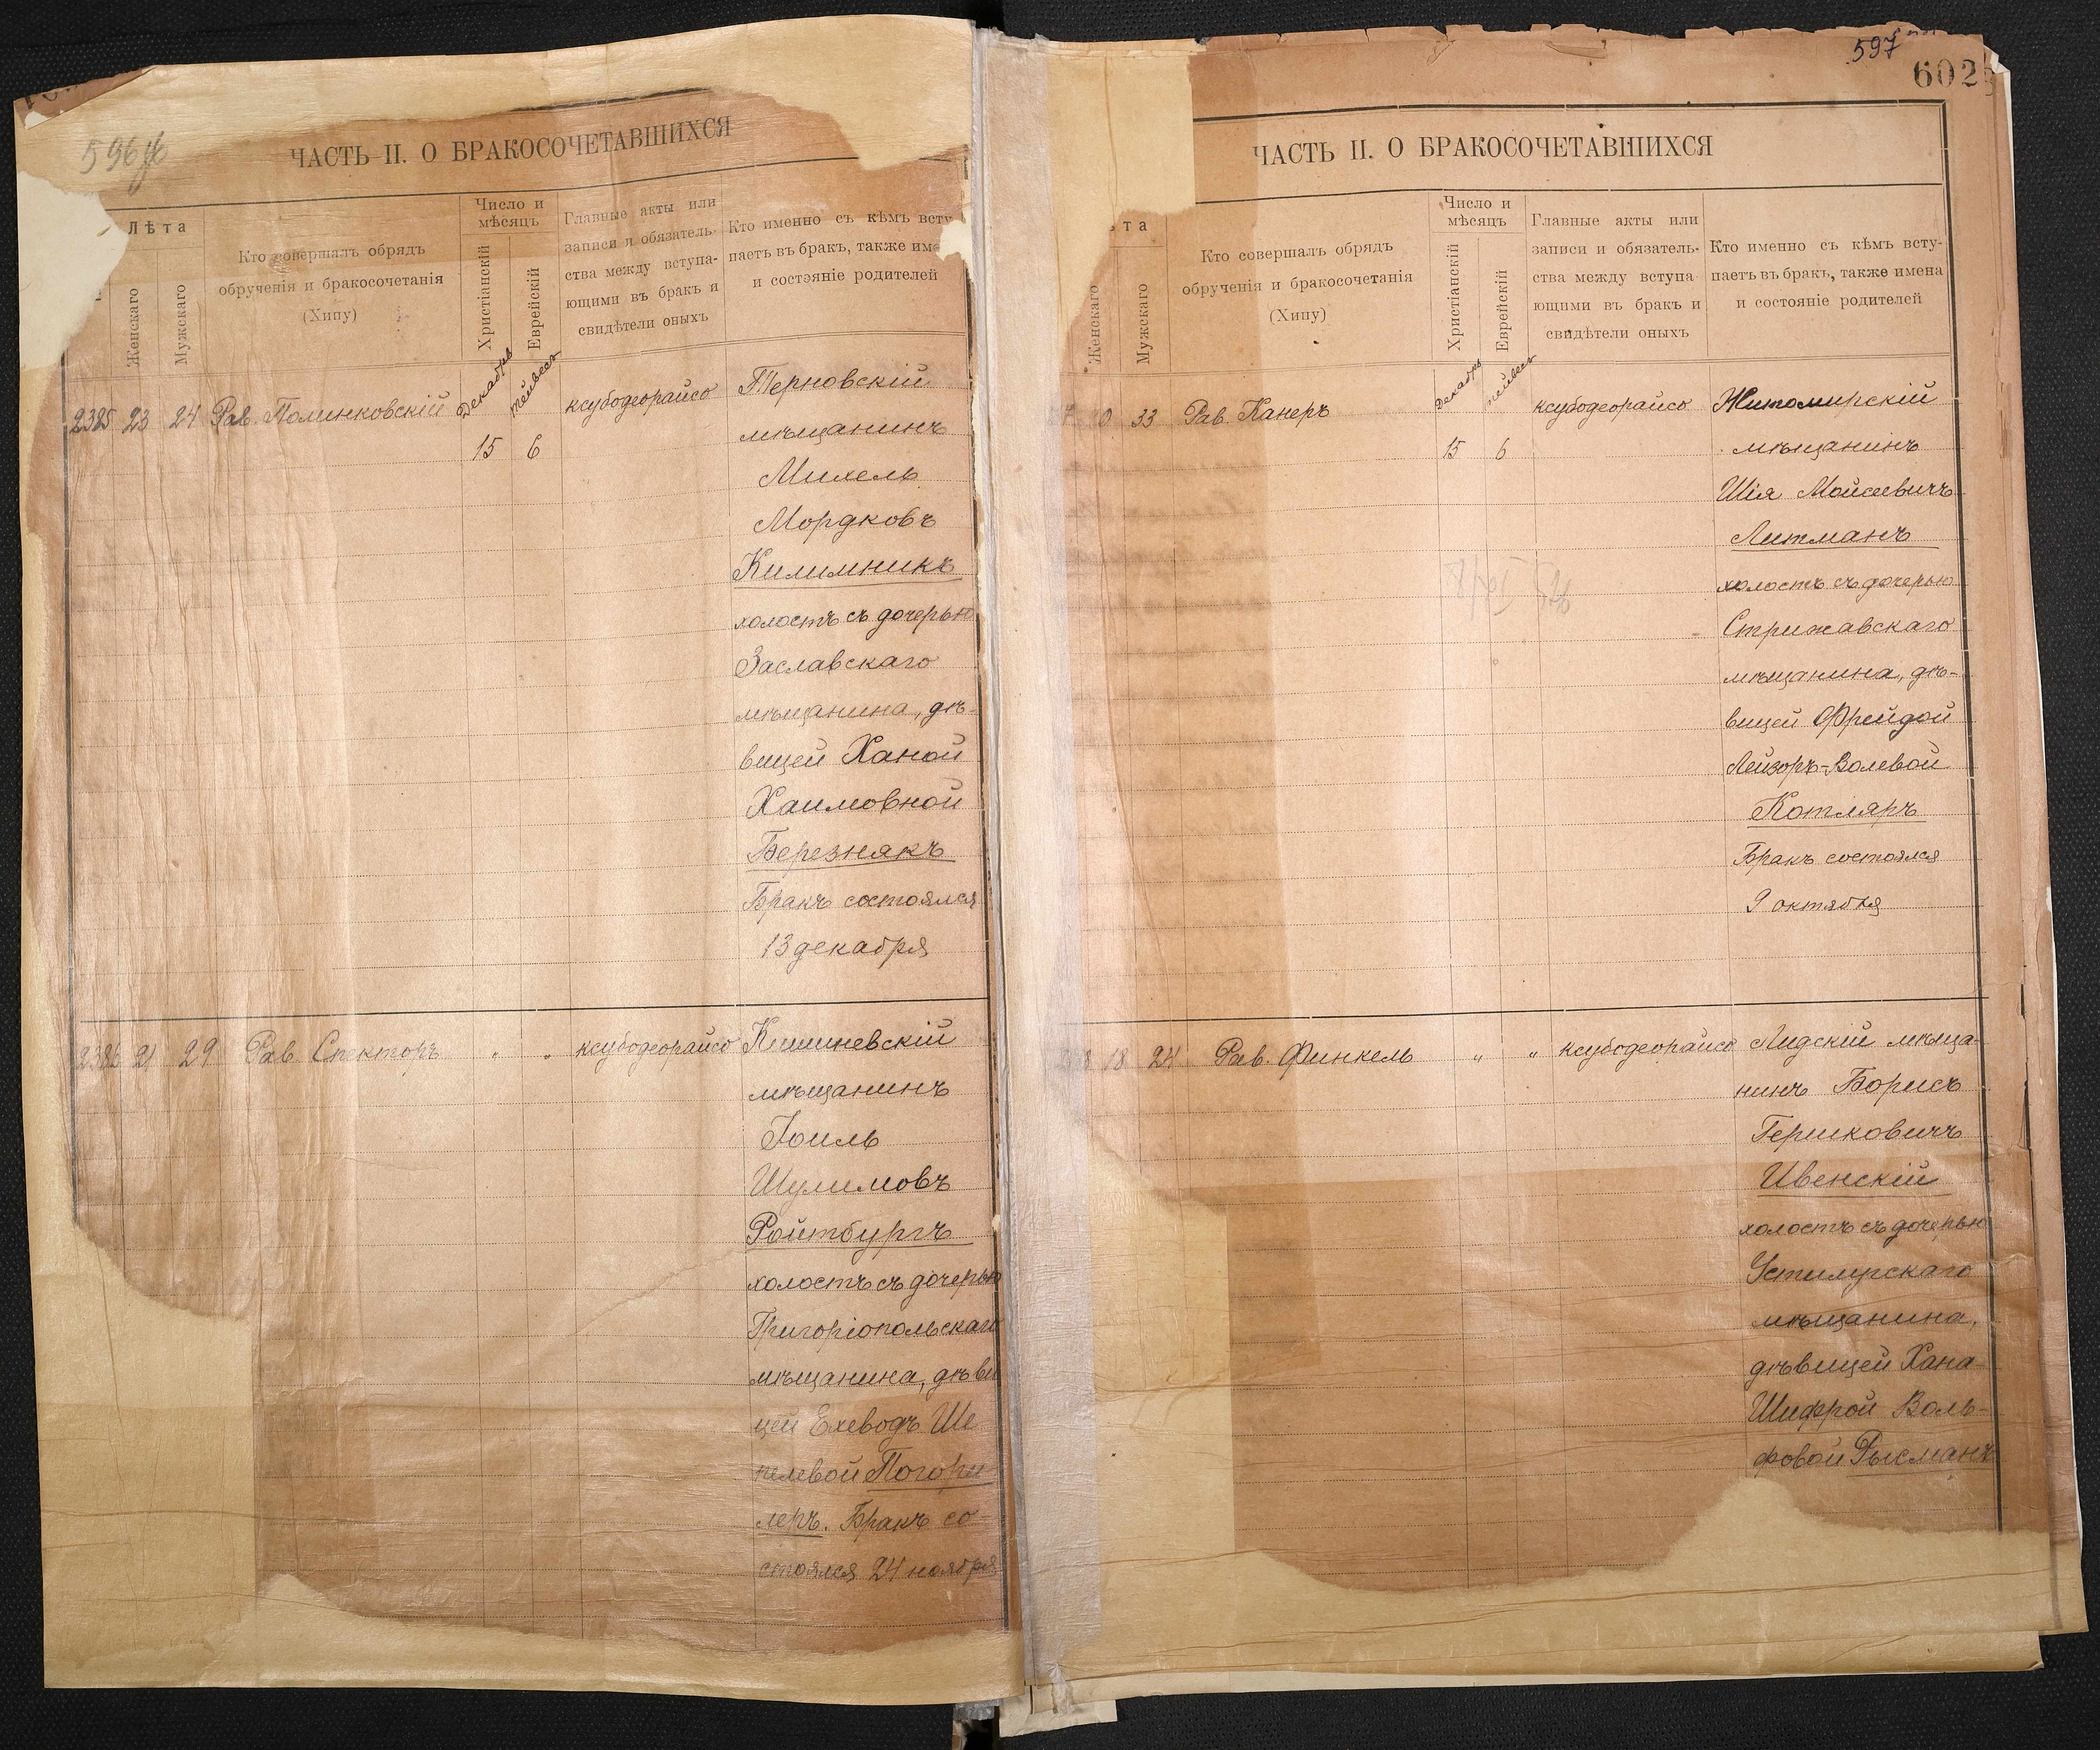 596 об
ЧАСТЬ II. О БРАКОСОЧЕТАВШИХСЯ
Лѣта
Женскаго
Мужскаго
Кто совершалъ обрядъ
обрученія и бракосочетанія
(Хипу)
Число и
мѣсяцъ
Христіанскій
Еврейскій
Главные акты или
записи и обязатель-
ства между вступа-
ющими въ бракъ и
свидѣтели оныхъ
Кто именно съ кѣмъ всту
паетъ въ бракъ, также им
и состояніе родителей
2385 23 24 Рав. Полинковскій Декабрь тейвесъ ксубодеорайсо Терновскій
15 6 мѣщанинъ
Михель
Мордковъ
Килимникъ
холостъ съ дочерью
Заславскаго
мѣщанина, дѣ-
вицей Ханой
Хаимовной
Березнякъ
Бракъ состоялся
13 декабря
2386 21 29 Рав. Спекторъ " " ксубодеорайсо Кишиневскій
мѣщанинъ
Іоиль
Шулимовъ
Ройтбургъ
холостъ съ дочерью
Григоріопольскаго
мѣщанина, дѣви
цей Ехеводъ Ше
пелевой Погори
леръ. Бракъ со-
стоялся 24 ноября
597
602
ЧАСТЬ II. О БРАКОСОЧЕТАВШИХСЯ
та
Женскаго
Мужскаго
Кто совершалъ обрядъ
обрученія и бракосочетанія
(Хипу)
Число и
мѣсяцъ
Христіанскій
Еврейскій
Главные акты или
записи и обязатель-
ства между вступа-
ющими въ бракъ и
свидѣтели оныхъ
Кто именно съ кѣмъ всту-
паетъ въ бракъ, также имена
и состояніе родителей
7 0 33 Рав. Канеръ Декабрь тейвесъ ксубодеорайсо Житомирскій
15 6 мѣщанинъ
Шія Мойсеевичъ
Литманъ
холостъ съ дочерью
Стрижавскаго
мѣщанина, дѣ-
вицей Фрейдой
Лейзоръ-Волевой
Котляръ
Бракъ состоялся
9 октября
8 18 24 Рав. Финкель " " ксубодеорайсо Лидскій мѣща-
нинъ Борисъ
Гершковичъ
Ивенскій
холостъ съ дочерью
Устилугскаго
мѣщанина,
дѣвицей Хана
Шифрой Воль-
фовой Рысманъ